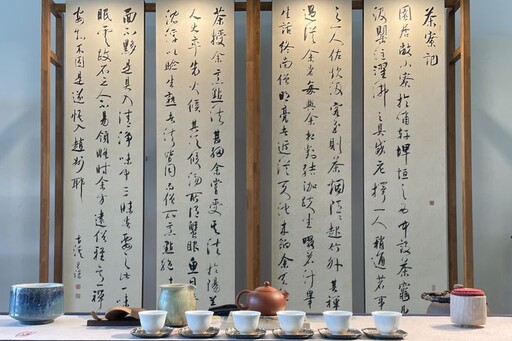 茶寮記
園居敞小寮於嘯軒埤垣之西中設茶竈凡
汲罌注濯拂之具咸庀擇一人稍通茗事
之一人佐炊汲客至則茶烟隱隱起竹外其禪
過從余者每與余相對結跏趺坐啜茗汁舉
生話終南僧明亮者近從天池來餉余
茶授余烹點法甚細余嘗受其法於陽羨
人大率先火候其次候湯所謂蟹眼魚目
沈浮以驗生熟者法皆同而僧所烹點絕
面不黟是具入清淨味中三昧者要之此一味
眠雲跂石人未易領略時余方遠俗雅意禪
安知不因是遂悟入趙州耶